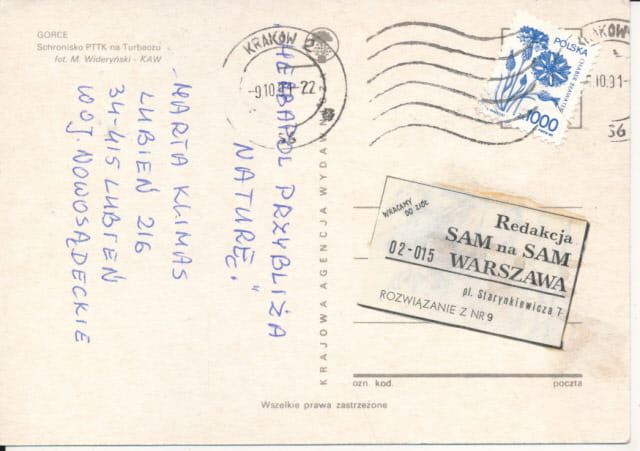 GORCE
Schronisko PTTK na Turbaczu
fot. M. Wideryński - KAW
„HERBAPOL PRZYBLIŻA
NATURĘ."
MARTA KLIMAS
LUBIEŃ 216
34-415 LUBIEŃ
WOJ. NOWOSĄDECKIE
KRAJOWA AGENCJA WYDAWNICZA
KRAKÓW 2
-9.10.91-22
36
POLSKA
CHABER BŁAWATEK
1000
KRAKÓW
.10.91-
36
WRACAMY
DO ZIÓŁ
Redakcja
SAM na SAM
02-015 WARSZAWA
pl. Starynkiewicza 7
ROZWIĄZANIE Z NR 9
ozn. kod. poczta
Wszelkie prawa zastrzeżone